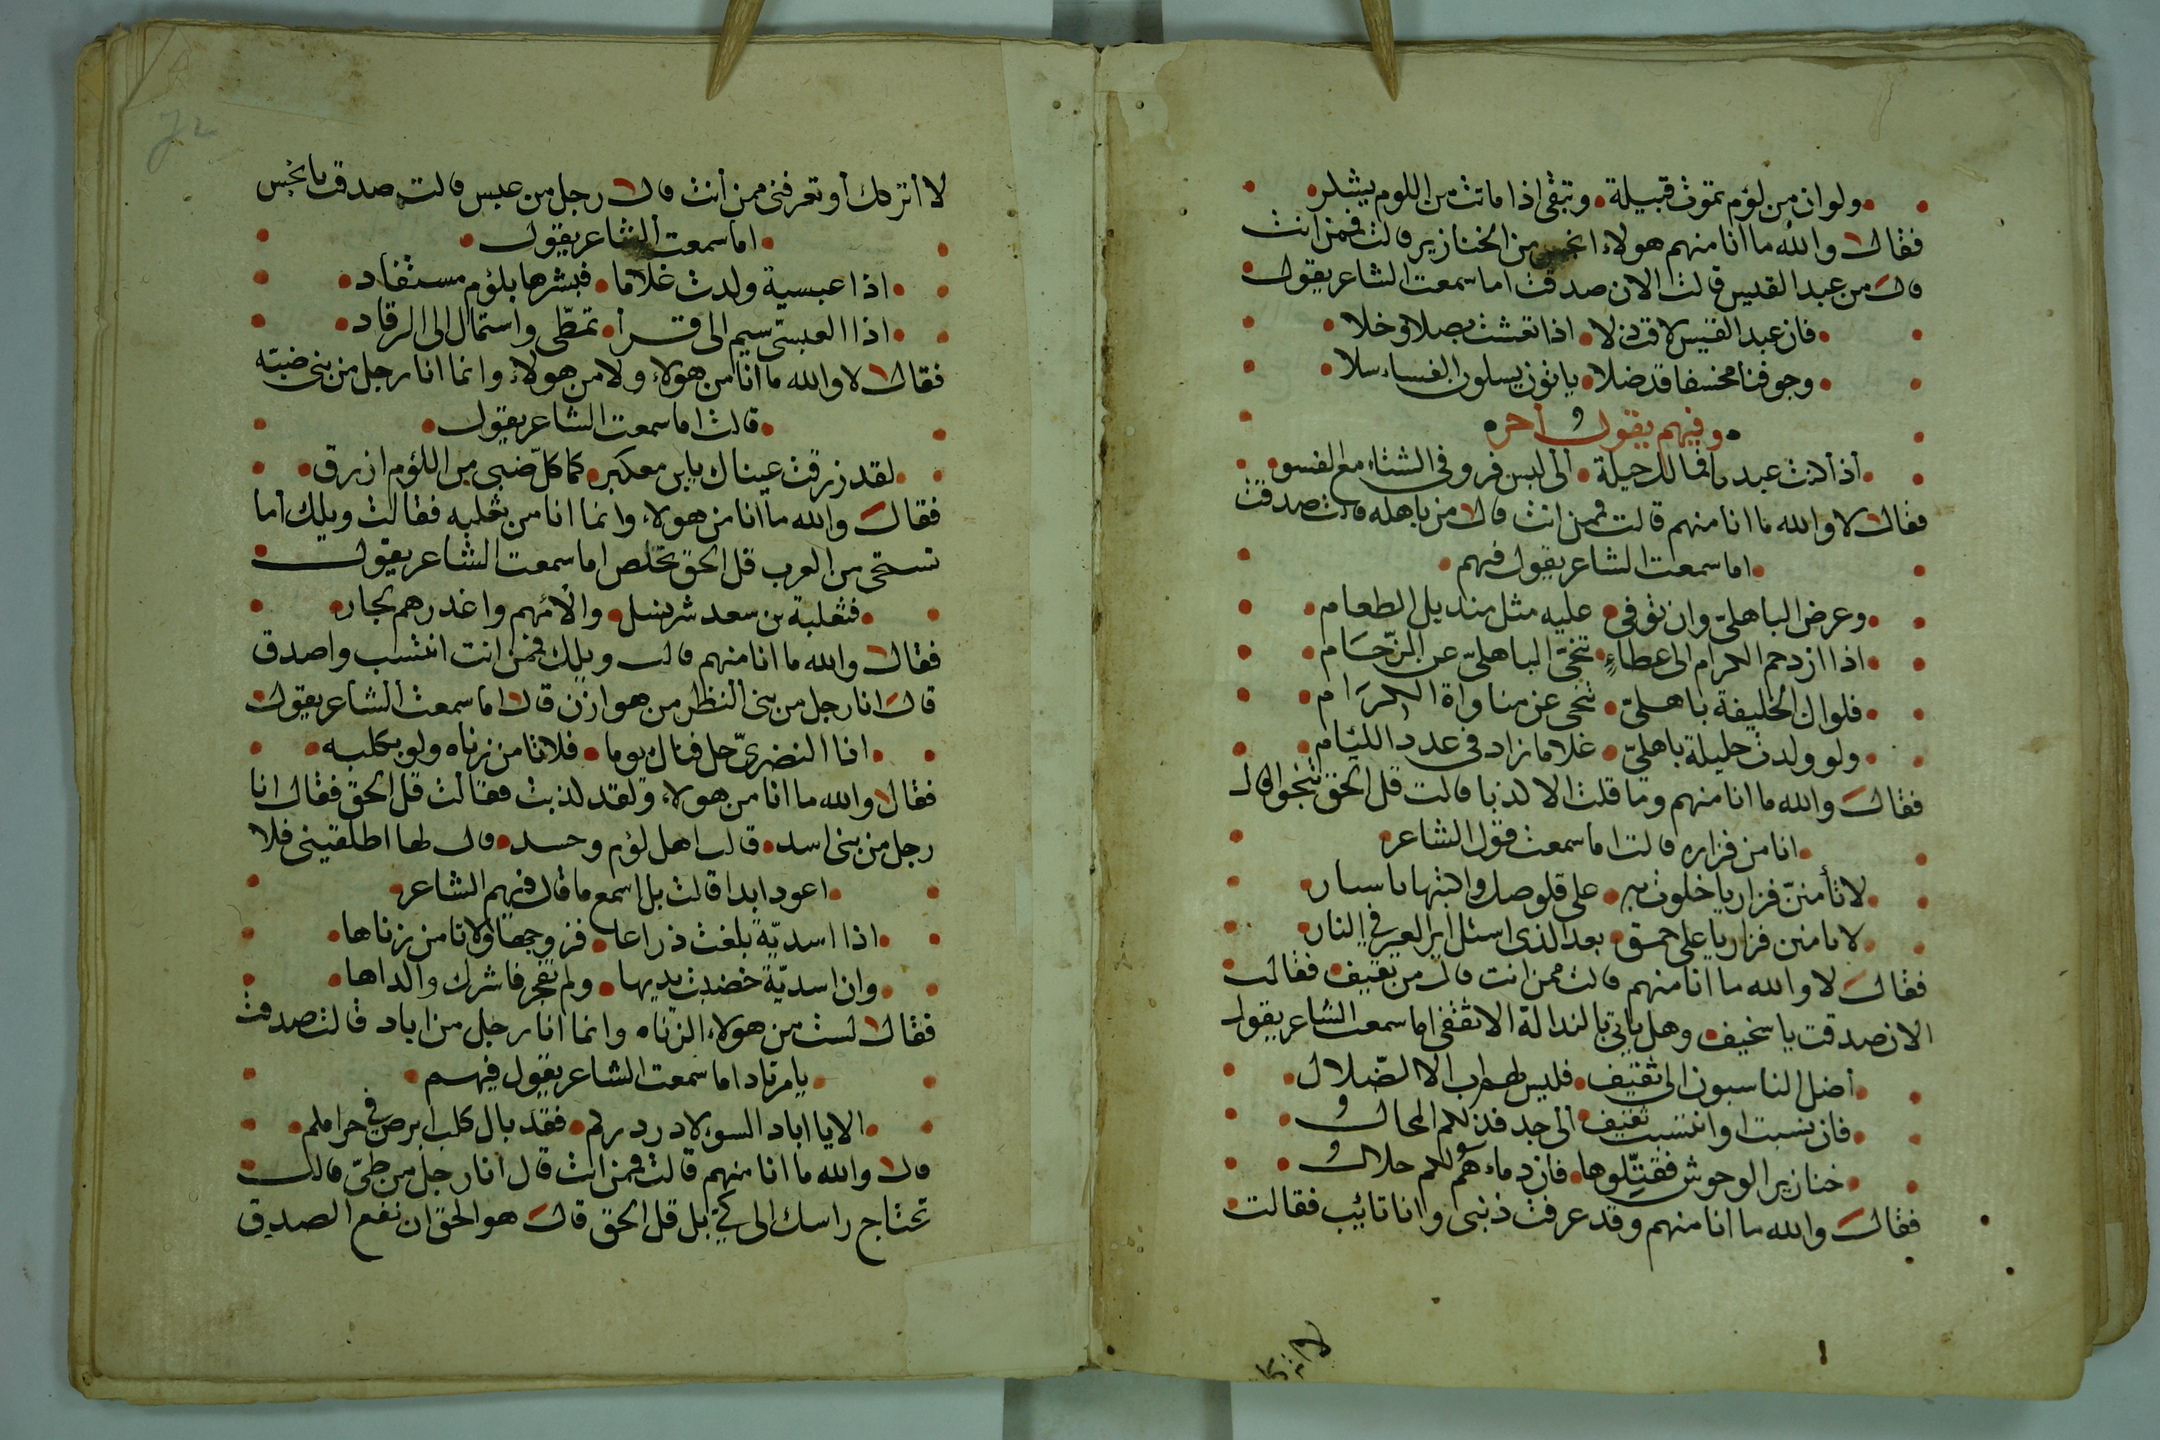 ولو ان من لؤم تموت قبيلة • وتبقى اذا ماتت من اللوم يشكر
فقال والله ما انا منهم هولاء انجس من الخنازير قالت فمن انت
قال من عبد القيس قالت الان صدقت اما سمعت الشاعر يقول
فان عبد القيس لاقت ذلا • اذا تعشت بصلا وخلا
وجوفنا محسفا قد ضلا • باتون يسلون الفساء سلا
وفيهم يقول آخر
عبد حيلة • الى لبس فرو في الشتاء مع الفسو
فقال لا والله ما انا منهم قالت فممن انت قال من باهله قالت صدقت
اما سمعت الشاعر يقول فيهم
وعرض الباهلىّ وان توقى • عليه مثل منديل الطعام
اذا ازدحم الكرام الى عطاءٍ • تنحّى الباهلىّ عن الزّحام
فلو ان الخليفة باهلىّ • تنحى عن مناواة الكرام
ولو ولدت حليلة باهلىّ • غلاما زاد في عدد اللئيام
فقال والله ما انا منهم وما قلت الا كذبا قالت قل الحق تنجو قال
انا من فزاره قالت اما سمعت قول الشاعر
لا تأمننّ فزاريا خلوت به • على قلوصك واكتبها باسيار
لا تامنن فزاريا على حمق • بعد الذى استل اير العير في النار
فقال لا والله ما انا منهم قالت فمن انت قال من ثقيف فقالت
الان صدقت يا سخيف وهل ياتى بالندالة الا ثقفى اما سمعت الشاعر يقول
اضل الناسبون الى ثقيف • فليس لهم اب الا الضّلال
فان نسبت او انتسبت ثقيف الى جد فذلكم المحال
خنازير الوحوش فقتّلوها • فان دماءهم لكم حلال
فقال والله ما انا منهم وقد عرفت ذنبى وانا تائب فقالت
لا اتركك
72
لا أتركك أو تعرفنى ممن أنت قال رجل من عبس قالت صدقت يا نجس
اما سمعت الشاعر يقول
اذا عبسية ولدت غلاما • فبشرها بلؤم مستفاد
اذا العبسىّ سيم الى قرأ • تمطّى واستمال الى الرقاد
فقال لا والله ما انا من هولاء ولا من هولاء وانما انا رجل من بنى ضبّه
قالت اما سمعت الشاعر يقول
لقد زرقت عيناك يابن معكبر • كما كلّ ضبى من اللؤم ازرق
فقال والله ما انا من هولاء وانما انا من ثعلبه فقالت ويلك أما
تستحى من العرب قل الحق تخلص اما سمعت الشاعر يقول
فثعلبة بن سعد شر نسل • والأمهم واغدرهم بجار
فقال والله ما انا منهم قالت ويلك فمن انت انتسب واصدق
قال انا رجل من بنى النظر من هوازن قال اما سمعت الشاعر يقول
اذا النضرىّ حل فناك يوما • فلا تامن زناه ولو بكلبه
فقال والله ما انا من هولاء ولقد كذبت فقالت قل الحق فقال انا
رجل من بنى اسد • قالت اهل لؤم وحسد • قال لها اطلقينى فلا
اعود ابدا قالت بل اسمع ما قال فيهم الشاعر
اذا اسديّة بلغت ذراعا • فزوجها ولا تامن زناها
وان اسديّة خضبت يديها • ولم تفجر فاشرك والداها
فقال لست من هولاء الزناه وانما انا رجل من اياد قالت صدقت
يا مرتاد اما سمعت الشاعر يقول فيهم
الا يا اياد السوء لا در دركم • فقد بال كلب ابرص في حراملم
قال والله ما انا منهم قالت فمن انت قال انا رجل من طىّ قالت
تحتاج راسك الى كيّ بل قل الحق قال هو الحق ان نفع الصدق